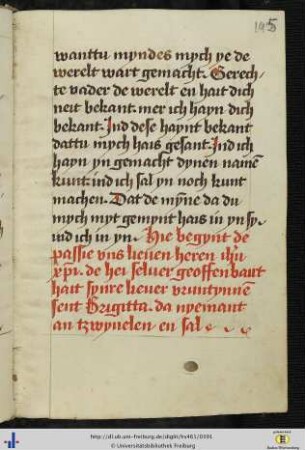 145
wanttu myndes mych ye de
werelt wart gemacht. Gerech-
te vader de werelt en hait dich
neit bekant. mer ich hayn dich
bekant. Ind dese haynt bekant
dattu mych hais gesant. Ind ich
hayn yn gemacht dynen namē
kunt. ind ich sal yn noch kunt
machen. Dat de mȳne da du
mych myt gemynt hais in yn sy.
ind ich in yn. Hie begynt de
passie vns lieuen heren ih̄u
xp̄i. de hei seluer geoffenbairt
hait synre lieuer vruntynnē
sent Brigitta. da nyemant
an tzwyuelen en sal
http://dl.ub.uni-freiburg.de/diglit/hs463/0306
© Universitätsbibliothek Freiburg